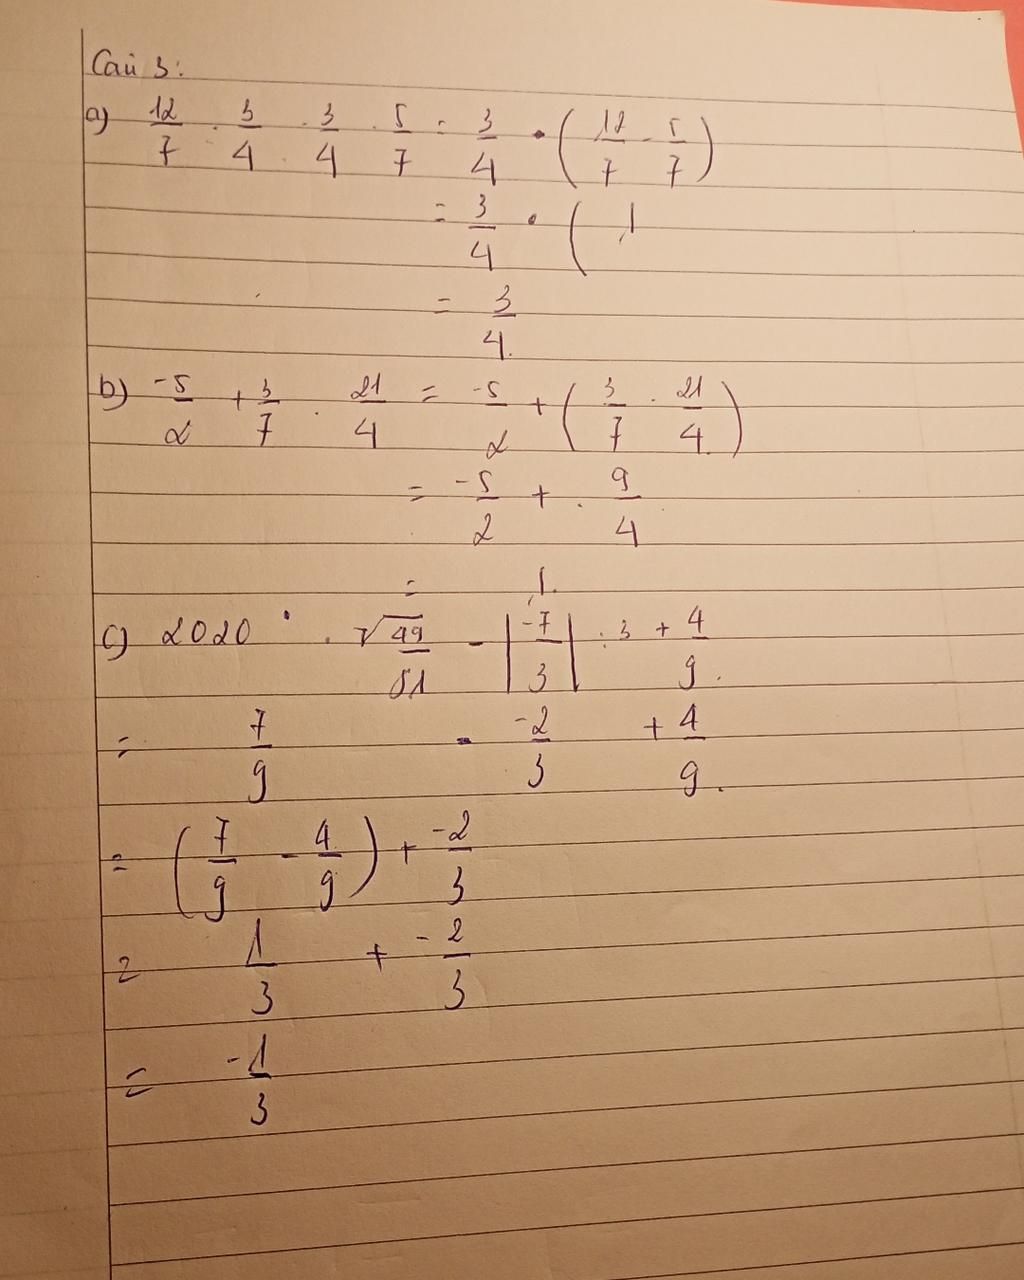 Câu 3:
a) 12/7 . 3/4 . 3/4 . 5/7 = 3/4 . (12/7 - 5/7)
= 3/4 . ( 1
= 3/4.
b) -5/2 + 3/7 . 21/4 = -5/2 + (3/7 . 21/4)
= -5/2 + . 9/4
= 1.
c) 2020° . √49/81 - |-7/3| : 3 + 4/9.
= 7/9 - -2/3 + 4/9.
= (7/9 - 4/9) + -2/3
= 1/3 + -2/3
= -1/3